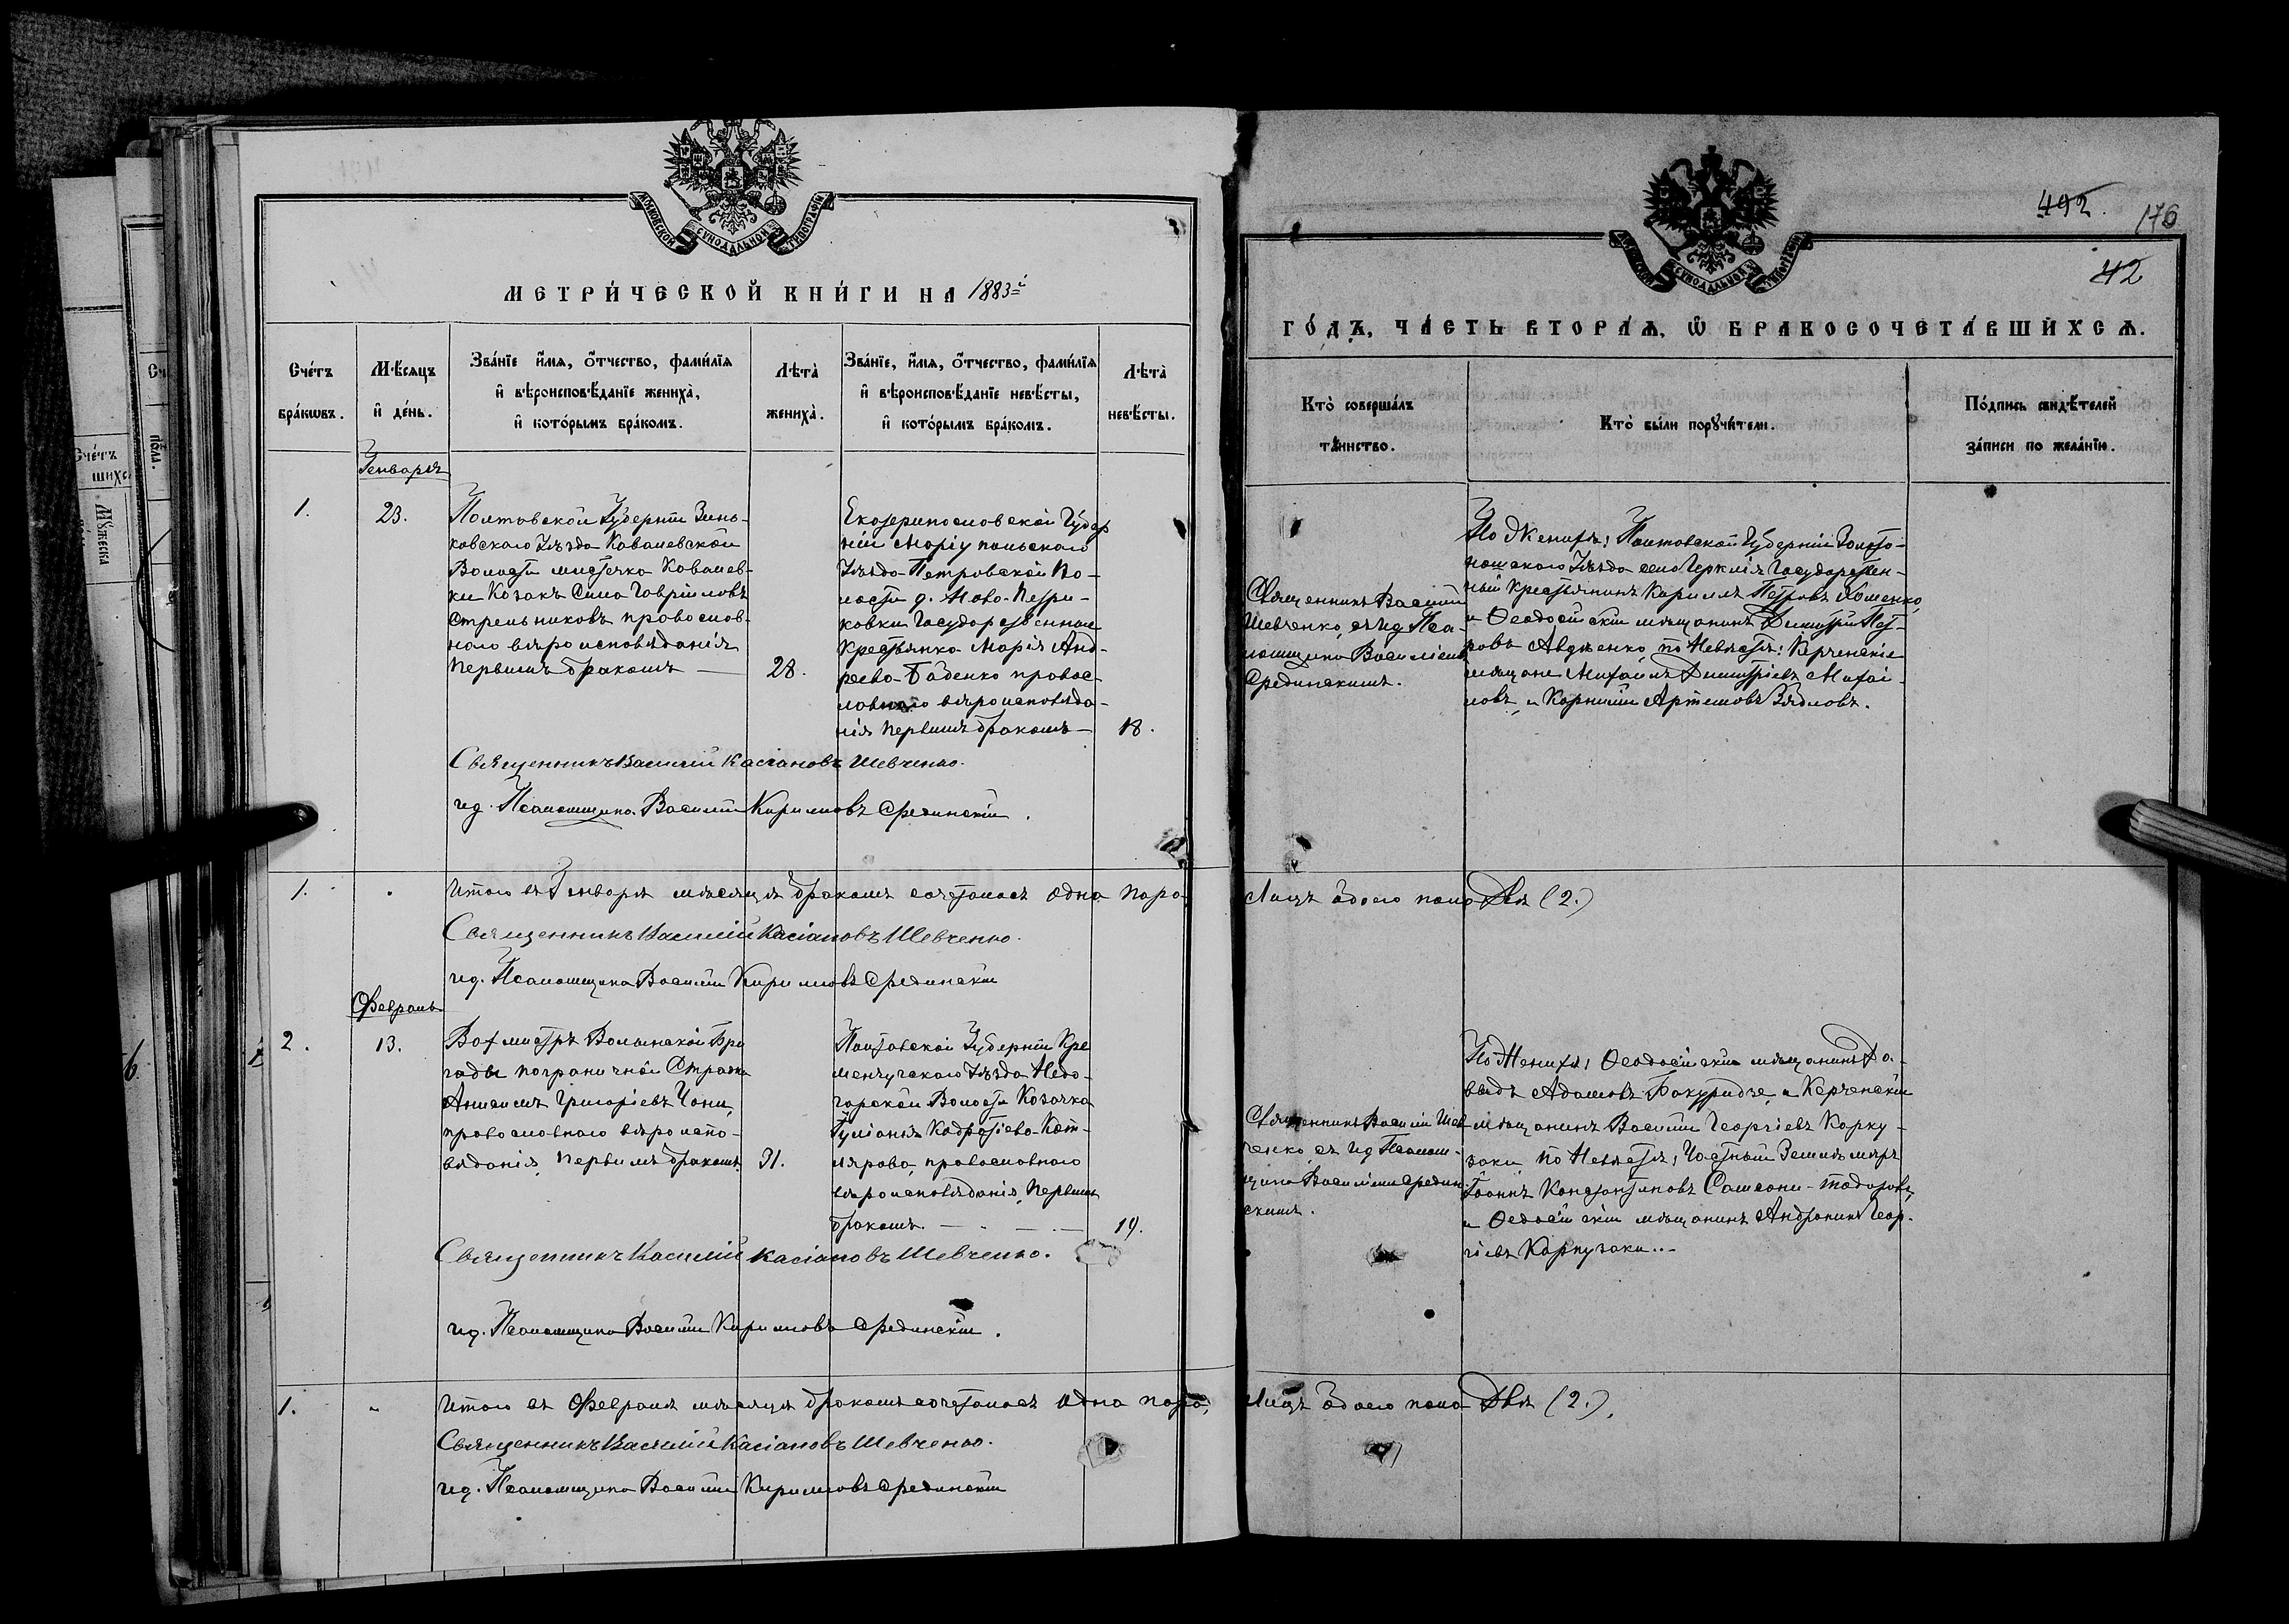 МОСКОВСКОЙ СѴНОДАЛЬНОЙ ТИПОГРАФІИ
МЕТРИ́ЧЕСКОЙ КНИ́ГИ НА 1883й
Сче́тъ бра́кωвъ.
Мѣ́сяцъ и҆ де́нь.
Зва́нїе, и҆́мя, ѻ҆́тчество, фами́лїя
и҆ вѣроисповѣ́данїе жениха̀,
и҆ кото́рымъ бра́комъ.
Лѣта̀ жениха̀.
Зва́нїе, и҆́мя, ѻ҆́тчество, фами́лїя
и҆ вѣроисповѣ́данїе невѣ́сты,
и҆ кото́рымъ бра́комъ.
Лѣта̀ невѣ́сты.
Генваря
1.
23.
Полтовской Губерніи Зинь-
ковского Уѣзда Ковалевской
Волости мистечка Ковалев-
ки Козакъ Сила Гавріиловъ
Стрельниковъ провослов-
ного вѣроисповѣданія
первымъ бракомъ —
28.
Екатеринословской Губер
ніи Маріупольского
Уѣзда Петровской Во-
лости д. Ново-Петри-
ковки Государственная
Крестьянка Марія Анд-
реева Баденко провос-
ловного вѣроисповѣда-
нія первымъ бракомъ —
18.
Священникъ Василій Касіановъ Шевченко.
ид. Псаломщика Василій Кириловъ Срединскій.
1.
Итого въ Генварѣ мѣсяцѣ бракомъ сочеталась одна пара
Священникъ Василій Касіановъ Шевченко.
ид. Псаломщика Василій Кириловъ Срединскій
Февраль
2.
13.
Вахмистръ Волынской Бри
гады пограничной Стражи
Анисимъ Григоріевъ Чони,
провословного вѣроиспо-
вѣданія, первымъ бракомъ
31.
Полтовской Губерніи Кре
менчугского Уѣзда Недо-
гарской Волости Козачка
Іуліанія Кодратіева Кот-
лярова, провословного
вѣроисповѣданія, первымъ
бракомъ. —
19.
Священникъ Василій Касіановъ Шевченко.
ид. Псаломщика Василій Кириловъ Срединскій.
1.
Итого въ Февралѣ мѣсяцѣ бракомъ сочеталась одна пара,
Священникъ Василій Касіановъ Шевченко.
ид. Псаломщика Василій Кириловъ Срединскій
492.
176
42
МОСКОВСКОЙ СѴНОДАЛЬНОЙ ТИПОГРАФІИ
ГО́ДЪ, ЧА́СТЬ ВТОРА́Я, Ѡ҆ БРАКОСОЧЕТА́ВШИХСЯ.
Кто̀ соверша́лъ та́инство.
Кто̀ бы́ли порꙋчи́тели.
По́дпись свидѣ́телей за́писи по жела́нїю.
Священникъ Василій
Шевченко, съ ид Пса-
ломщика Василіемъ
Срединскимъ.
По Женихѣ: Полтовской Губерніи Золото-
ношского Уѣзда села Государствен-
ный Крестьянинъ Кирилъ Петровъ Хоменко,
и Ѳеодосійскій мѣщанинъ Димитрій Пет-
ровъ Авдѣенко, по Невѣстѣ: Керченскіе
мѣщане Михаилъ Димитріевъ Михаи-
ловъ, и Корнилій Артемовъ
Лицъ обоего пола Двѣ (2.)
Священникъ Василій Шев-
ченко, съ ид Псалом-
щика Василіемъ Средин-
скимъ.
По Женихѣ: Ѳеодосійскій мѣщанинъ Да-
видъ Адамовъ Бокуридзе, и Керченскій
мѣщанинъ Василій Георгіевъ Карпу-
заки, по Невѣстѣ: Частный Землемѣръ
Іоаннъ Константиновъ
и Ѳеодосійскій мѣщанинъ Андроникъ Геор-
гіевъ Карпузаки..-
Лицъ обоего пола Двѣ (2.).